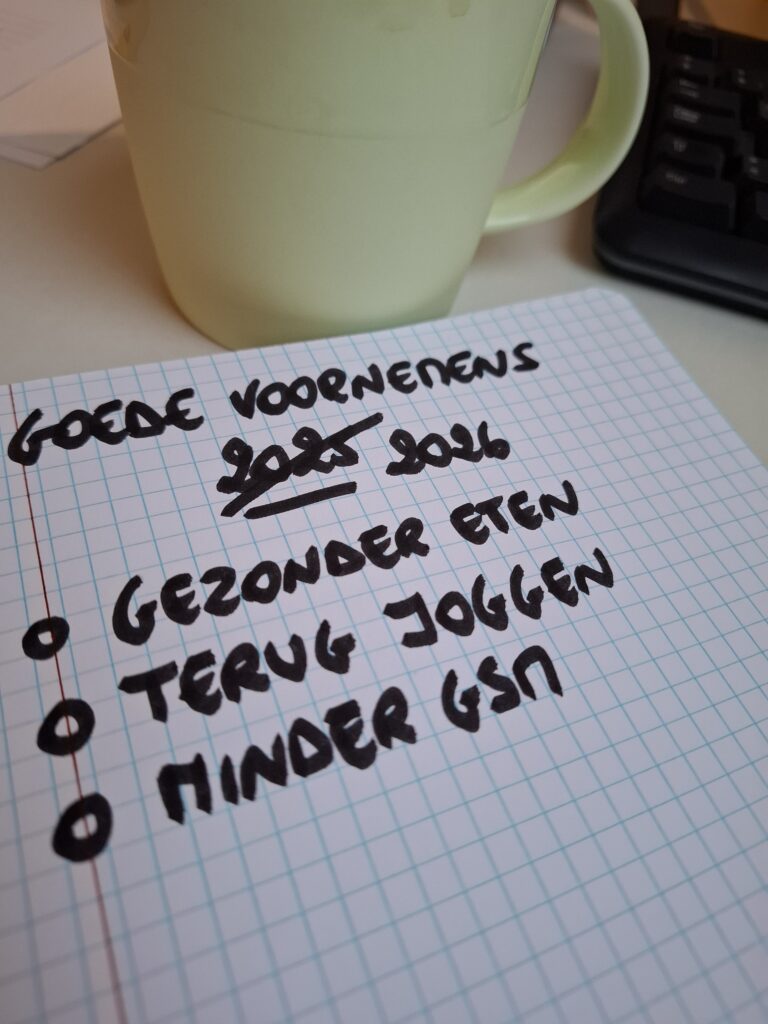 GOEDE VOORNEMENS
2025 2026
GEZONDER ETEN
TERUG JOGGEN
MINDER GSM